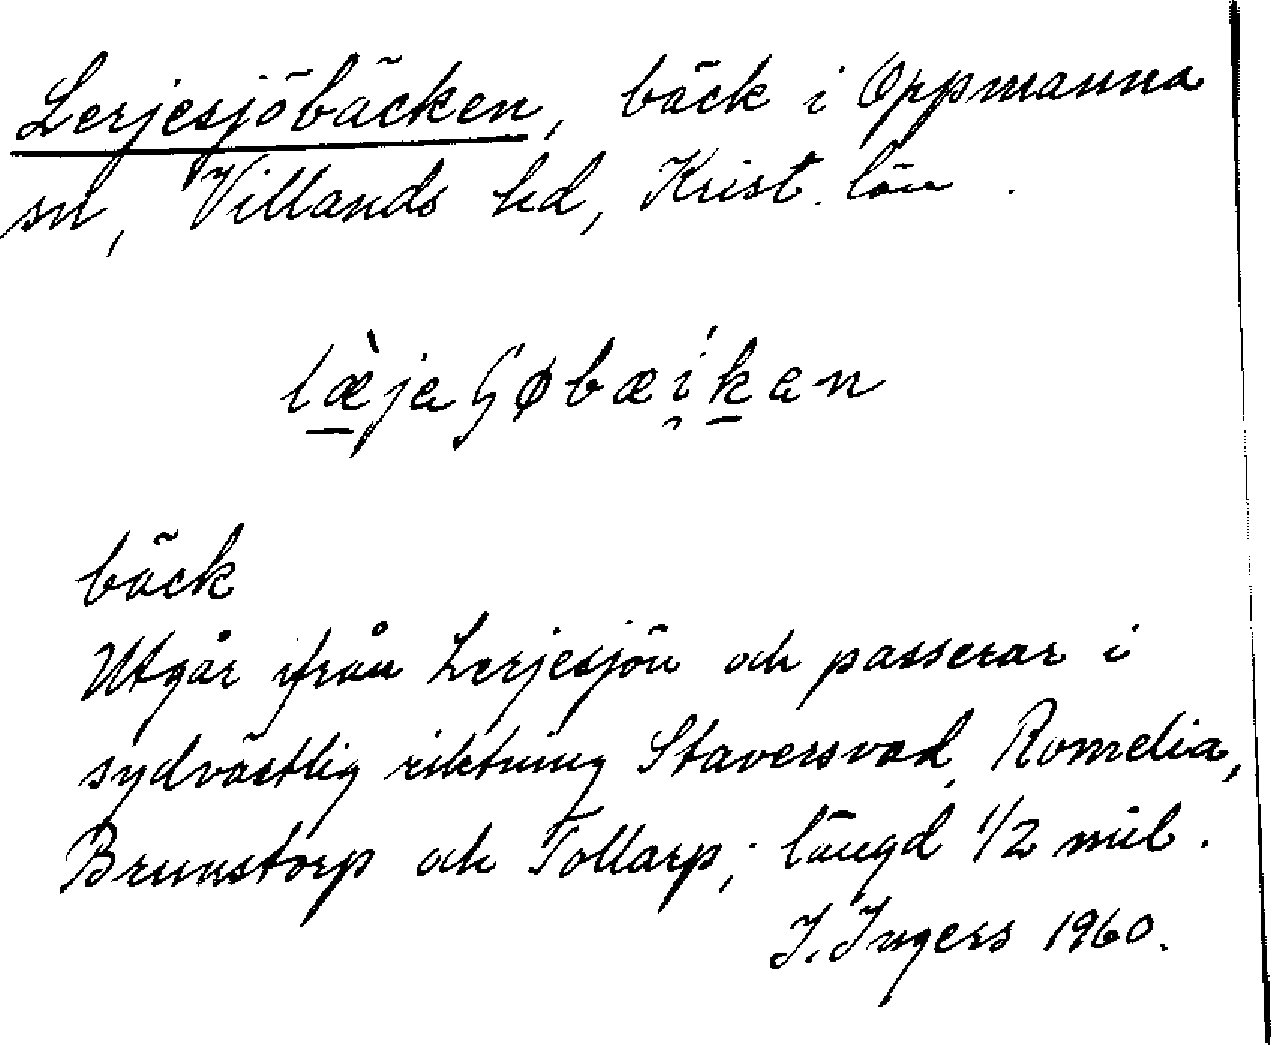 Lerjesjöbäcken, bäck i Oppmanna
sn, Villands hd, Krist. län.
læ̱̀jaʂøbæí̯ḵan
bäck
Utgår ifrån Lerjesjön och passerar i
sydvästlig riktning Staversvad, Romelia,
Brunstorp och Tollarp; längd 1/2 mil.
I. Ingers 1960.